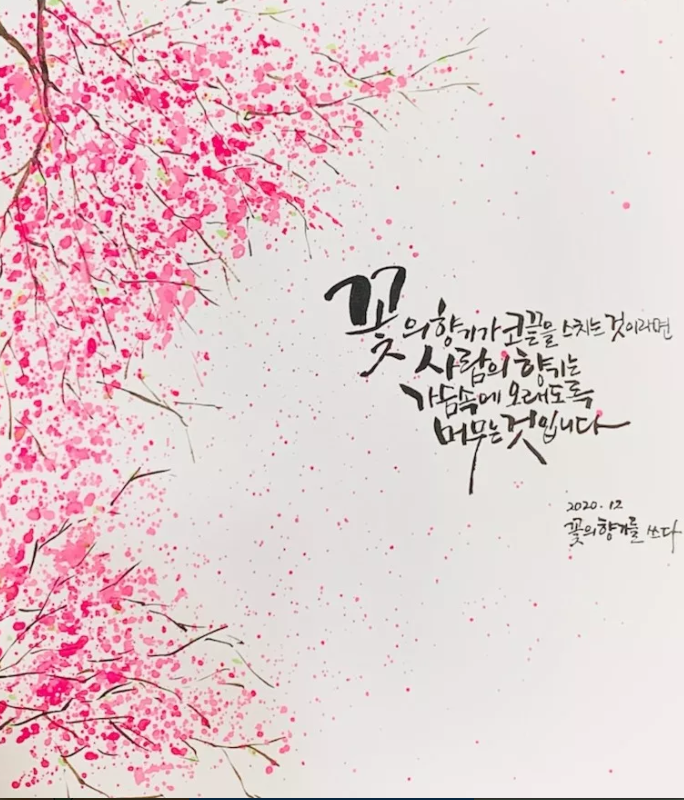 꽃의 향기가 코끝을 스치는 것이라면
사람의 향기는
가슴속에 오래도록
머무는 것입니다
2020. 12
꽃의 향기를 쓰다